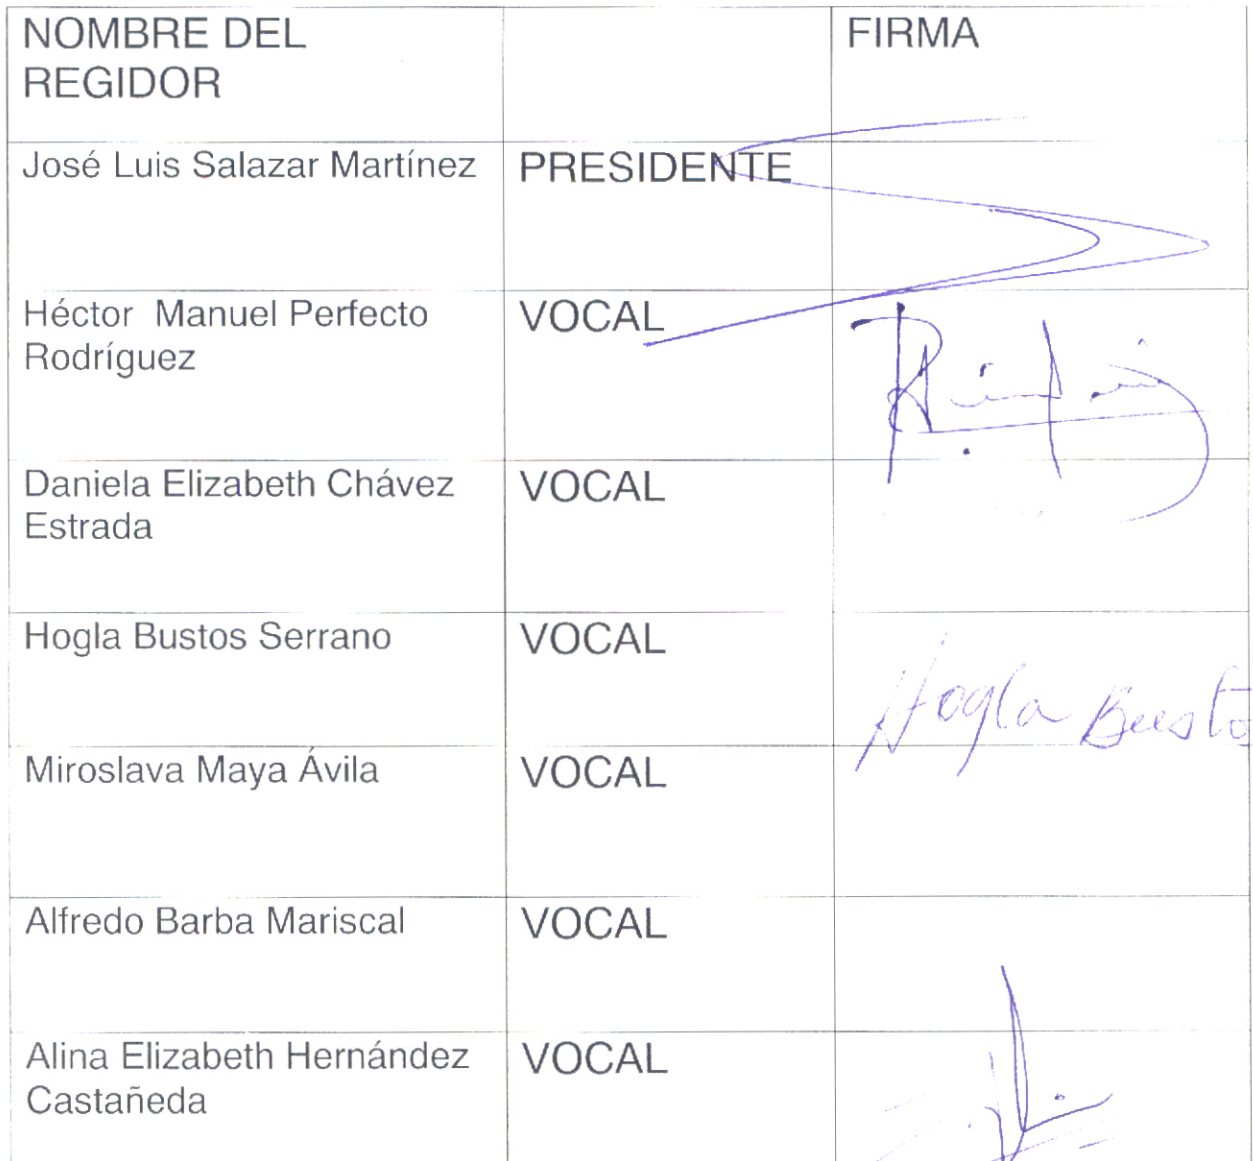 NOMBRE DEL
REGIDOR
FIRMA
José Luis Salazar Martínez
PRESIDENTE
Héctor Manuel Perfecto
Rodríguez
VOCAL
Daniela Elizabeth Chávez
Estrada
VOCAL
Hogla Bustos Serrano
VOCAL
Hogla Busto
Miroslava Maya Ávila
VOCAL
Alfredo Barba Mariscal
VOCAL
Alina Elizabeth Hernández
Castañeda
VOCAL